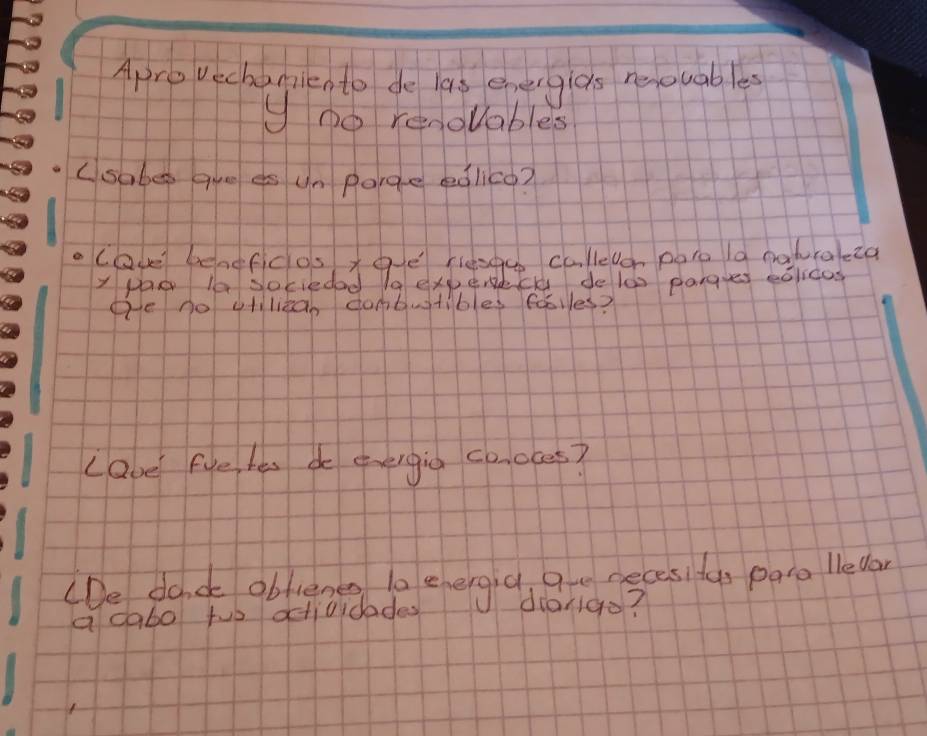 Aprovechamiento de las energias renovables
y no renovables.
• ¿sabes que es un parque eólico?
• ¿Qué beneficios y qué riesgos conllevan para la naturaleza
y para la sociedad la de los parques eólicos
que no utilizan combustibles fósiles?
¿Qué fuentes de energia conoces?
¿De donde obtienes la energia que necesitas para llevar
a cabo tus actividades y diarias?